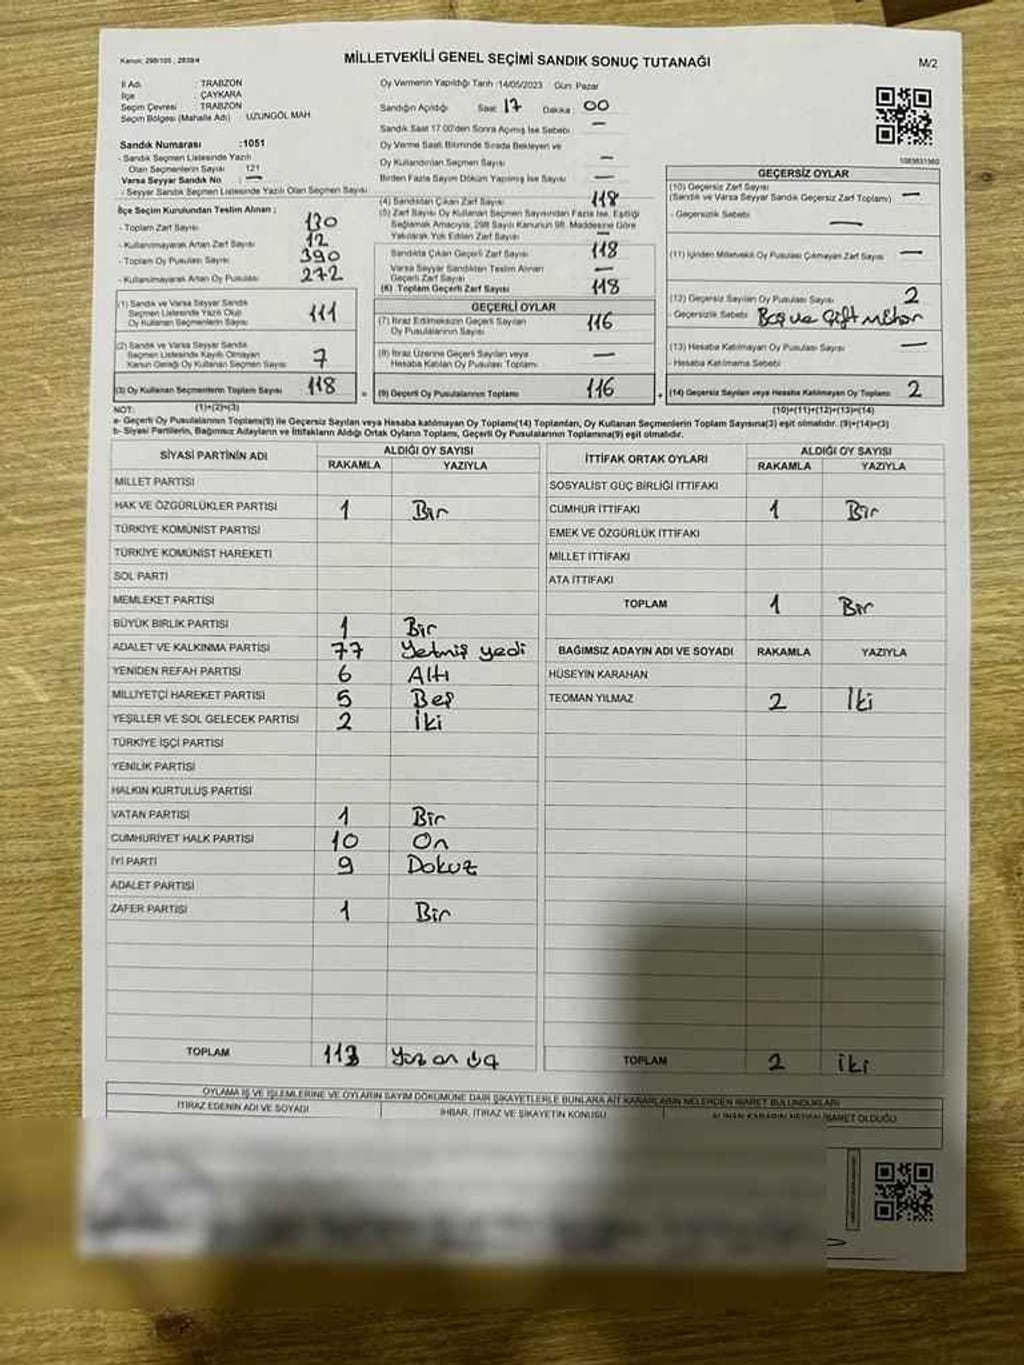 Kanun: 298/105 , 2839/4
MİLLETVEKİLİ GENEL SEÇİMİ SANDIK SONUÇ TUTANAĞI
M/2
İl Adı : TRABZON
İlçe : ÇAYKARA
Seçim Çevresi : TRABZON
Seçim Bölgesi (Mahalle Adı) : UZUNGÖL MAH
Oy Vermenin Yapıldığı Tarih :14/05/2023 Gün: Pazar
Sandığın Açıldığı Saat: 17 Dakika: 00
Sandık Saat 17.00'den Sonra Açılmış İse Sebebi : —
Oy Verme Saati Bitiminde Sırada Bekleyen ve
Oy Kullandırılan Seçmen Sayısı : —
Birden Fazla Sayım Döküm Yapılmış İse Sayısı : —
Sandık Numarası :1051
- Sandık Seçmen Listesinde Yazılı
Olan Seçmenlerin Sayısı : 121
Varsa Seyyar Sandık No : —
- Seyyar Sandık Seçmen Listesinde Yazılı Olan Seçmen Sayısı
İlçe Seçim Kurulundan Teslim Alınan ;
- Toplam Zarf Sayısı : 130
- Kullanılmayarak Artan Zarf Sayısı : 12
- Toplam Oy Pusulası Sayısı : 390
- Kullanılmayarak Artan Oy Pusulası : 272
(1) Sandık ve Varsa Seyyar Sandık
Seçmen Listesinde Yazılı Olup
Oy Kullanan Seçmenlerin Sayısı : 111
(2) Sandık ve Varsa Seyyar Sandık
Seçmen Listesinde Kayıtlı Olmayan
Kanun Gereği Oy Kullanan Seçmen Sayısı : 7
(3) Oy Kullanan Seçmenlerin Toplam Sayısı : 118
(1)+(2)=(3)
(4) Sandıktan Çıkan Zarf Sayısı : 118
(5) Zarf Sayısı Oy Kullanan Seçmen Sayısından Fazla İse, Eşitliği
Sağlamak Amacıyla; 298 Sayılı Kanunun 98. Maddesine Göre
Yakılarak Yok Edilen Zarf Sayısı : —
Sandıkta Çıkan Geçerli Zarf Sayısı : 118
Varsa Seyyar Sandıktan Teslim Alınan
Geçerli Zarf Sayısı : —
(6) Toplam Geçerli Zarf Sayısı : 118
GEÇERLİ OYLAR
(7) İtiraz Edilmeksizin Geçerli Sayılan
Oy Pusulalarının Sayısı : 116
(8) İtiraz Üzerine Geçerli Sayılan veya
Hesaba Katılan Oy Pusulası Toplamı : —
(9) Geçerli Oy Pusulalarının Toplamı : 116
1083631560
GEÇERSİZ OYLAR
(10) Geçersiz Zarf Sayısı : —
(Sandık ve Varsa Seyyar Sandık Geçersiz Zarf Toplamı)
- Geçersizlik Sebebi : —
(11) İçinden Milletvekili Oy Pusulası Çıkmayan Zarf Sayısı : —
(12) Geçersiz Sayılan Oy Pusulası Sayısı : 2
- Geçersizlik Sebebi : Boş ve Çift mühür
(13) Hesaba Katılmayan Oy Pusulası Sayısı : —
- Hesaba Katılmama Sebebi :
(14) Geçersiz Sayılan veya Hesaba Katılmayan Oy Toplamı : 2
(10)+(11)+(12)+(13)=(14)
NOT:
a- Geçerli Oy Pusulasının Toplamı(9) ile Geçersiz Sayılan veya Hesaba katılmayan Oy Toplamı(14) Toplamları, Oy Kullanan Seçmenlerin Toplam Sayısına(3) eşit olmalıdır. (9)+(14)=(3)
b- Siyasi Partilerin, Bağımsız Adayların ve İttifakların Aldığı Ortak Oyların Toplamı, Geçerli Oy Pusulalarının Toplamına(9) eşit olmalıdır.
SİYASİ PARTİNİN ADI ALDIĞI OY SAYISI
RAKAMLA YAZIYLA
MİLLET PARTİSİ
HAK VE ÖZGÜRLÜKLER PARTİSİ 1 Bir
TÜRKİYE KOMÜNİST PARTİSİ
TÜRKİYE KOMÜNİST HAREKETİ
SOL PARTİ
MEMLEKET PARTİSİ
BÜYÜK BİRLİK PARTİSİ 1 Bir
ADALET VE KALKINMA PARTİSİ 77 Yetmiş yedi
YENİDEN REFAH PARTİSİ 6 Altı
MİLLİYETÇİ HAREKET PARTİSİ 5 Beş
YEŞİLLER VE SOL GELECEK PARTİSİ 2 İki
TÜRKİYE İŞÇİ PARTİSİ
YENİLİK PARTİSİ
HALKIN KURTULUŞ PARTİSİ
VATAN PARTİSİ 1 Bir
CUMHURİYET HALK PARTİSİ 10 On
İYİ PARTİ 9 Dokuz
ADALET PARTİSİ
ZAFER PARTİSİ 1 Bir
TOPLAM 113 Yüz on üç
İTTİFAK ORTAK OYLARI ALDIĞI OY SAYISI
RAKAMLA YAZIYLA
SOSYALİST GÜÇ BİRLİĞİ İTTİFAKI
CUMHUR İTTİFAKI 1 Bir
EMEK VE ÖZGÜRLÜK İTTİFAKI
MİLLET İTTİFAKI
ATA İTTİFAKI
TOPLAM 1 Bir
BAĞIMSIZ ADAYIN ADI VE SOYADI RAKAMLA YAZIYLA
HÜSEYİN KARAHAN
TEOMAN YILMAZ 2 İki
TOPLAM 2 iki
OYLAMA İŞ VE İŞLEMLERİNE VE OYLARIN SAYIM DÖKÜMÜNE DAİR ŞİKAYETLERLE BUNLARA AİT KARARLARIN NELERDEN İBARET BULUNDUKLARI
İTİRAZ EDENİN ADI VE SOYADI İHBAR, İTİRAZ VE ŞİKAYETİN KONUSU